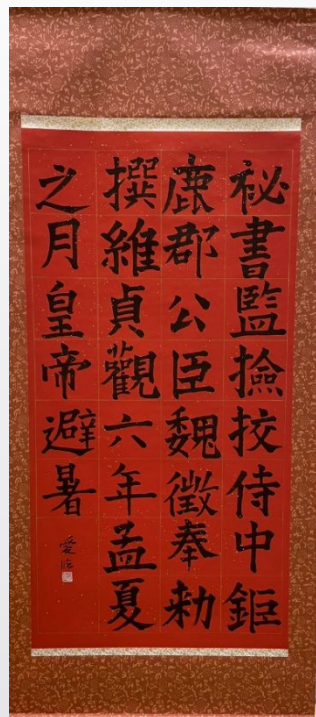 祕書監撿挍侍中鉅
鹿郡公臣魏徵奉勑
撰維貞觀六年孟夏
之月皇帝避暑